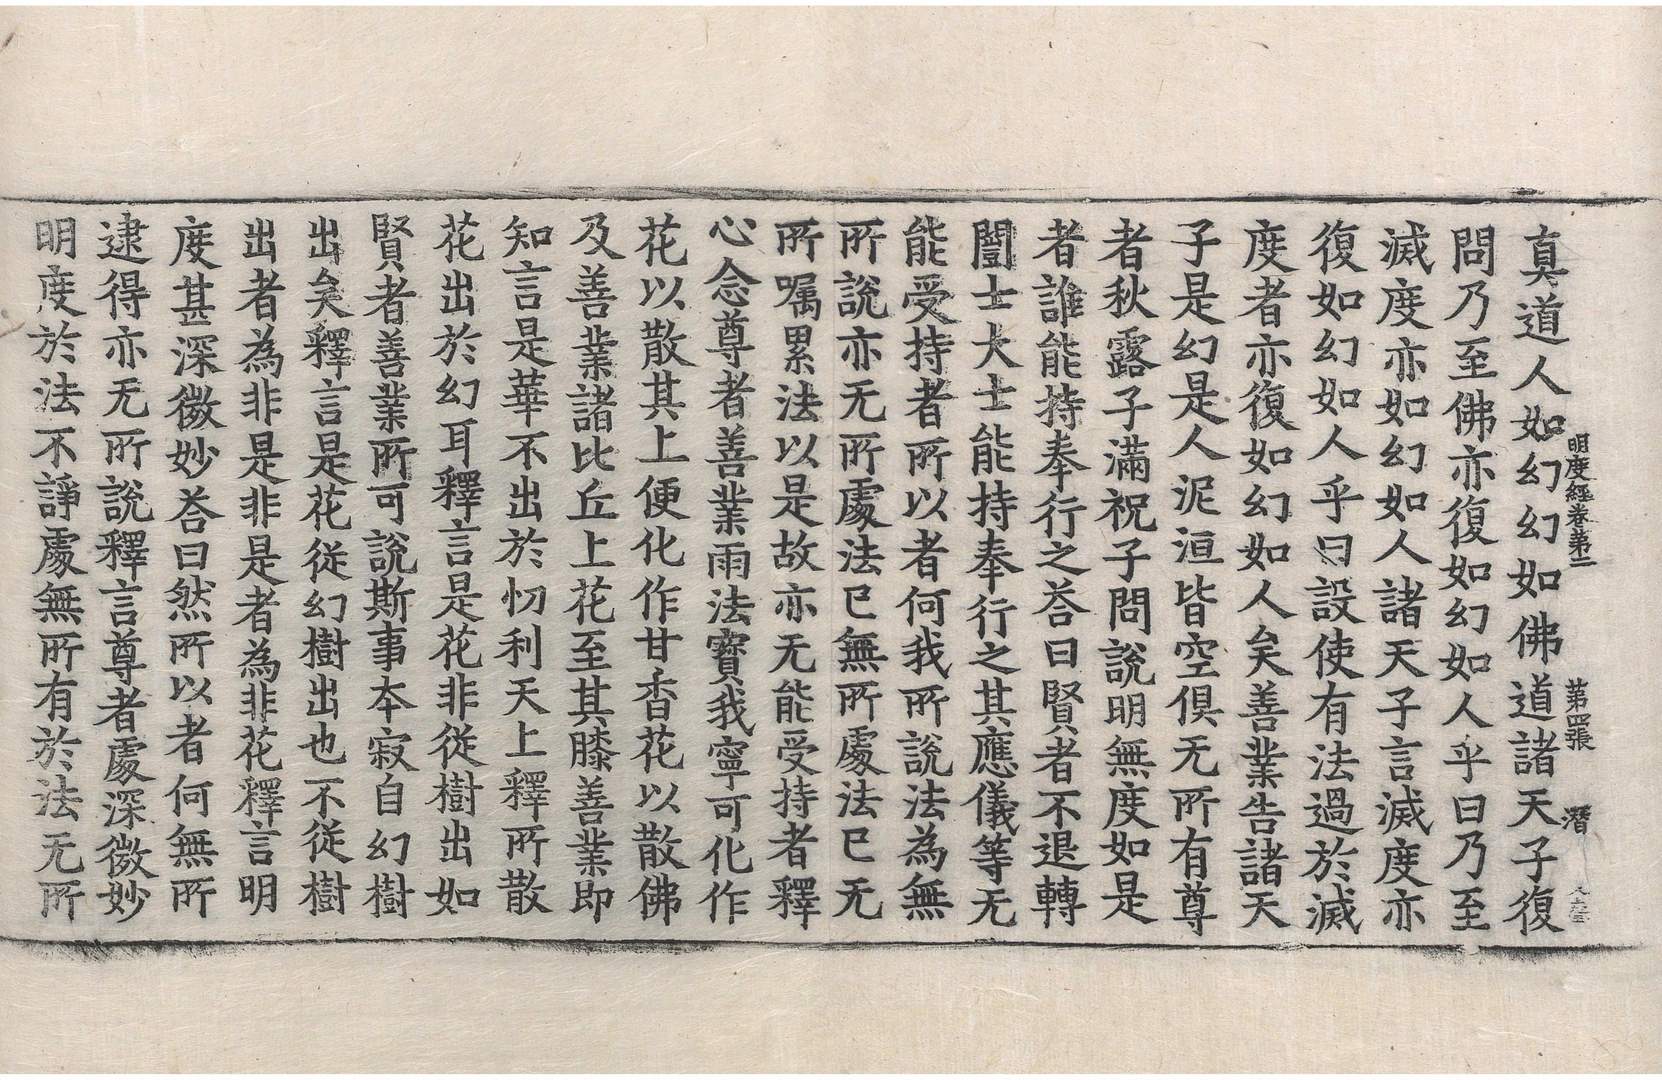 明度經卷第二 第四張 潛
真道人如幻幻如佛道諸天子復
問乃至佛亦復如幻如人乎曰乃至
滅度亦如幻如人諸天子言滅度亦
復如幻如人乎曰設使有法過於滅
度者亦復如幻如人矣善業告諸天
子是幻是人泥洹皆空俱无所有尊
者秋露子滿祝子問說明無度如是
者誰能持奉行之荅曰賢者不退轉
闓士大士能持奉行之其應儀等无
能受持者所以者何我所說法為無
所說亦无所處法已無所處法已无
所嘱累法以是故亦无能受持者釋
心念尊者善業雨法寶我寧可化作
花以散其上便化作甘香花以散佛
及善業諸比丘上花至其膝善業即
知言是華不出於忉利天上釋所散
花出於幻耳釋言是花非從樹出如
賢者善業所可說斯事本寂自幻樹
出矣釋言是花從幻樹出也不從樹
出者為非是非是者為非花釋言明
度甚深微妙荅曰然所以者何無所
逮得亦无所說釋言尊者處深微妙
明度於法不諍處無所有於法无所